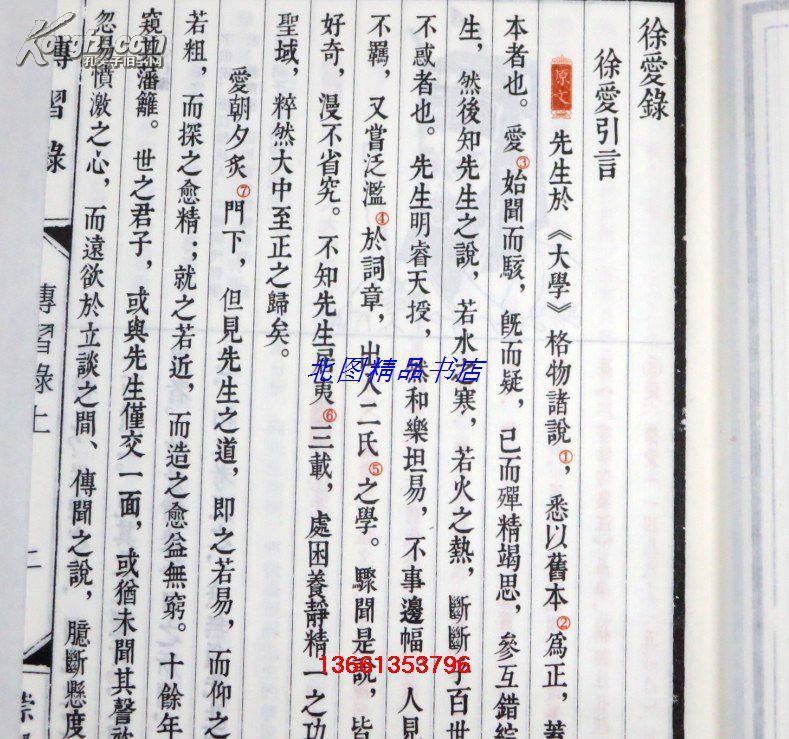 徐愛錄
徐愛引言
原文 先生於《大學》格物諸說①，悉以舊本②爲正，蓋
本者也。愛③始聞而駭，旣而疑，已而殫精竭思，參互錯綜
生，然後知先生之說，若水之寒，若火之熱，斷斷乎百世
不惑者也。先生明睿天授，然和樂坦易，不事邊幅。人見
不羈，又嘗泛濫④於詞章，出入二氏⑤之學。驟聞是說，皆
好奇，漫不省究。不知先生居夷⑥三載，處困養靜，精一之功
聖域，粹然大中至正之歸矣。
愛朝夕炙⑦門下，但見先生之道，即之若易，而仰之
若粗，而探之愈精；就之若近，而造之愈益無窮。十餘年
窺其藩籬。世之君子，或與先生僅交一面，或猶未聞其聲欬
忽易憤激之心，而遽欲於立談之間、傳聞之說，臆斷懸度
傳習錄
傳習錄上
二
崇
北图精品书店
13661353796
孔夫子旧书网